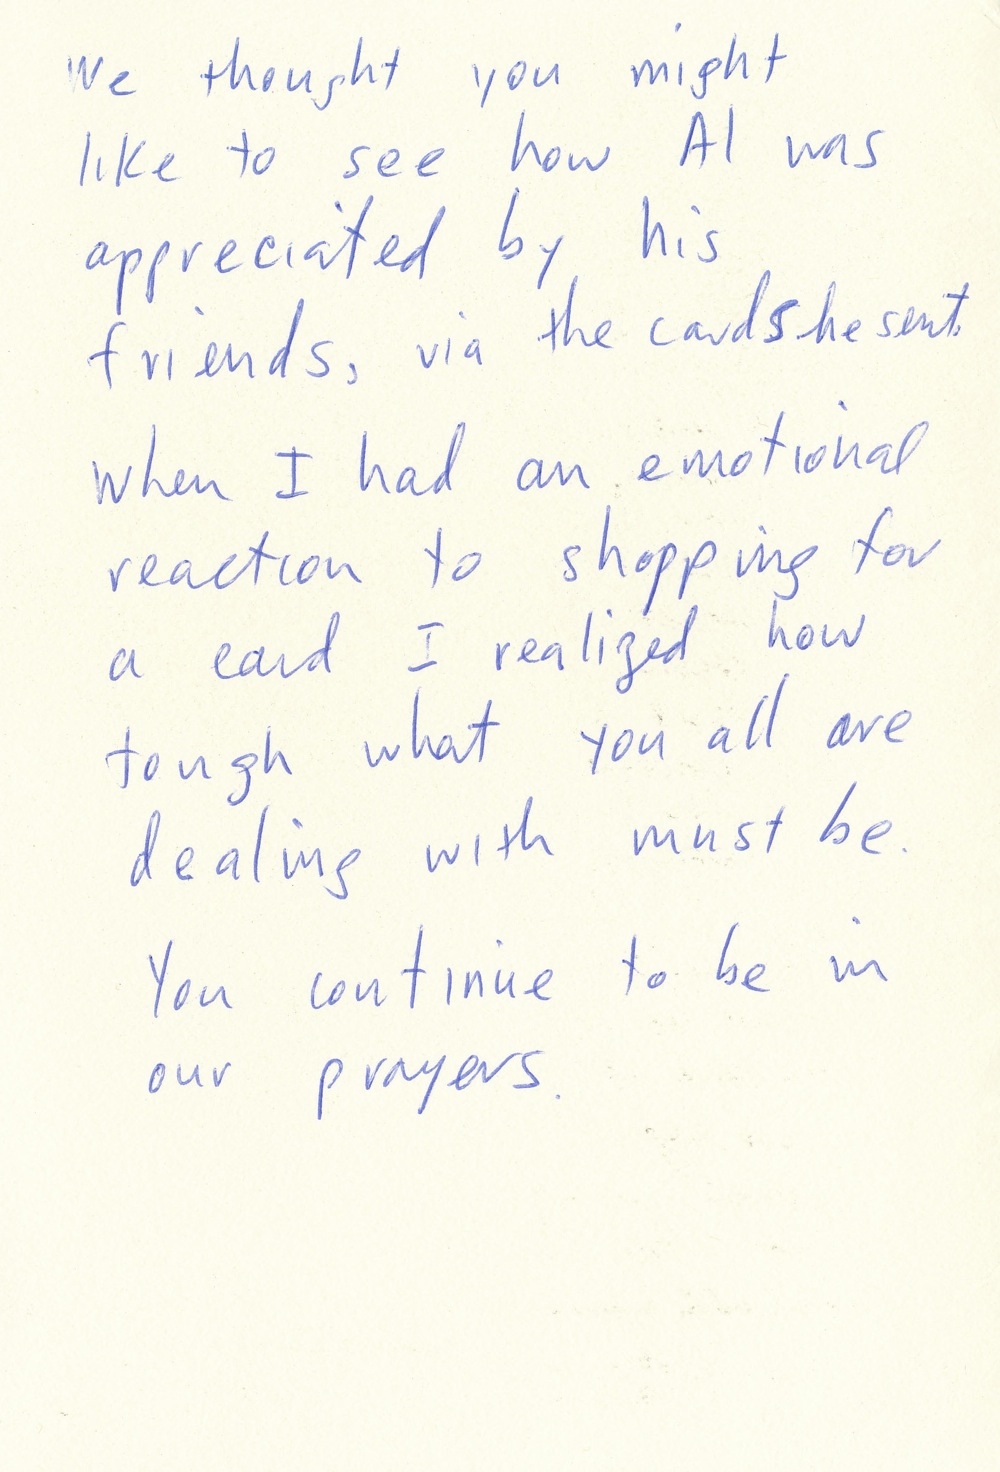 We thought you might
like to see how Al was
appreciated by his
friends, via the cards he sent.
When I had an emotional
reaction to shopping for
a card I realized how
tough what you all are
dealing with must be.
You continue to be in
our prayers.